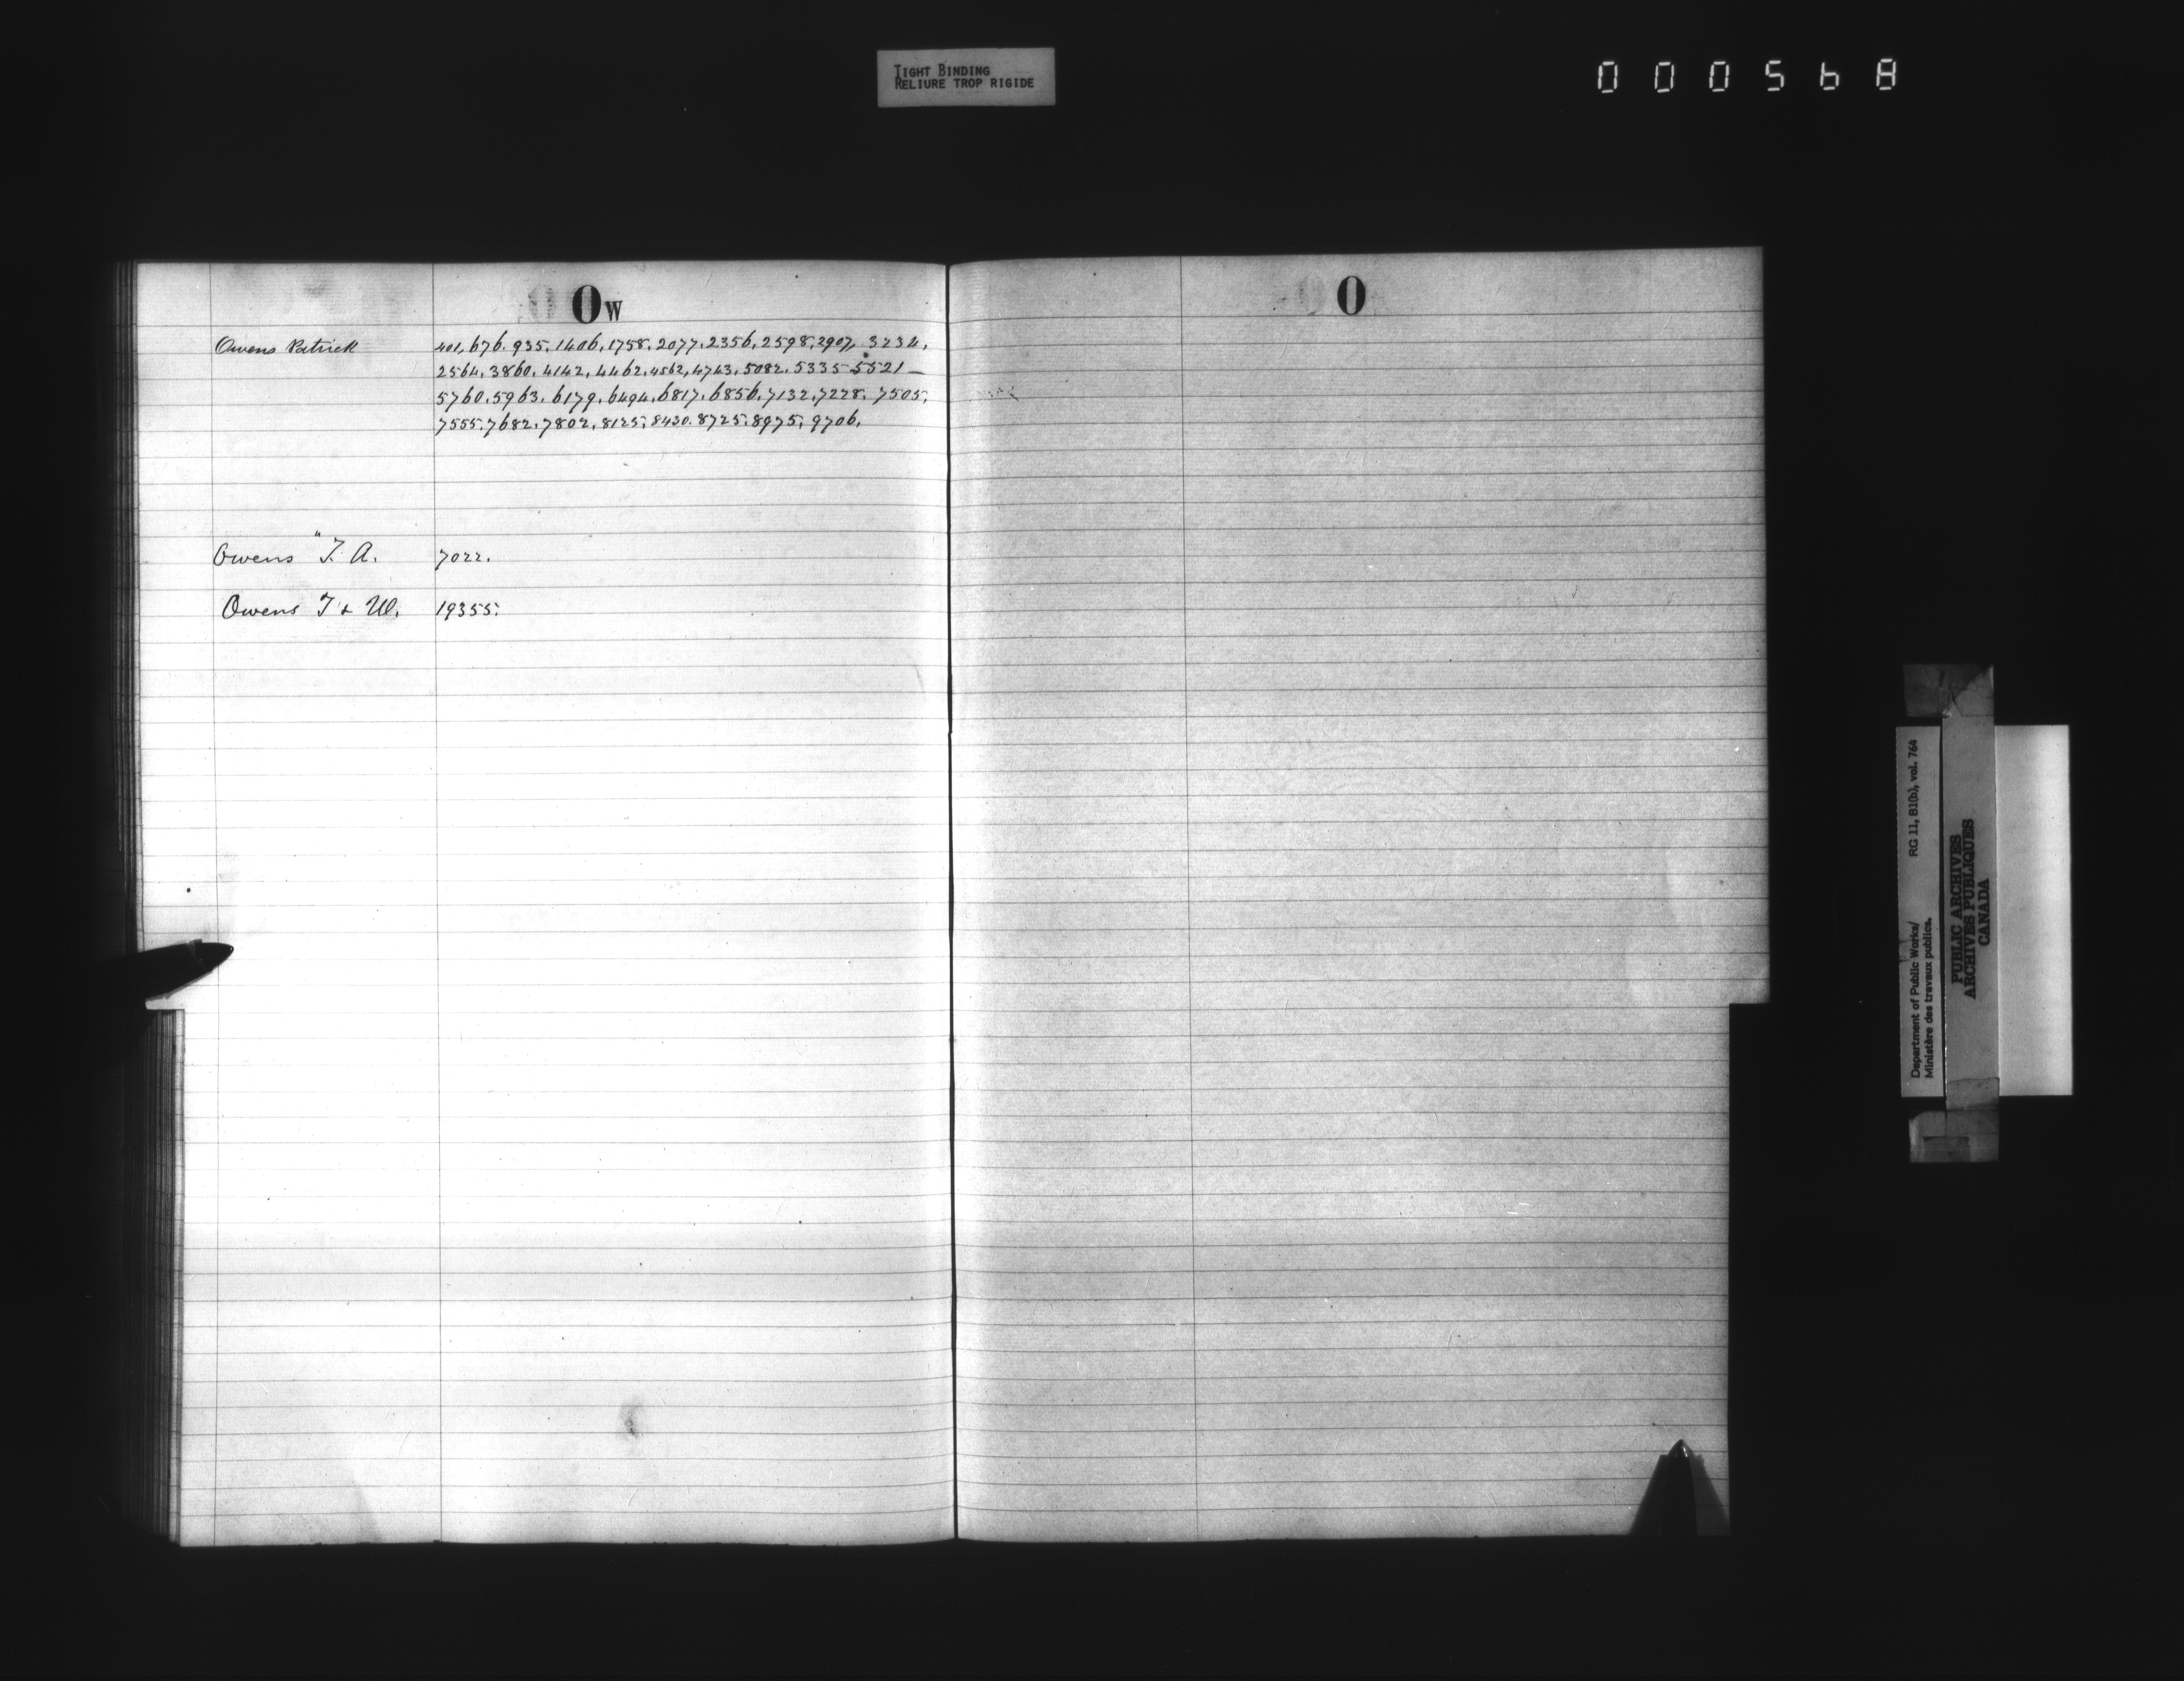 TIGHT BINDING
RELIURE TROP RIGIDE
000568
Ow
O
Owens Patrick 401, 676. 935, 1406, 1758, 2077, 2356, 2598, 2907, 3234,
2564, 3860, 4142, 4462, 4562, 4743, 5082, 5335 5521 —
5760, 5963, 6179, 6494, 6817, 6856, 7132, 7228, 7505,
7555, 7682, 7802, 8125, 8430. 8725, 8975, 9706.
Owens " T. A. 7022.
Owens T & W. 19355.
Department of Public Works/ RG 11, B1(b), vol. 764
Ministère des travaux publics.
PUBLIC ARCHIVES
ARCHIVES PUBLIQUES
CANADA